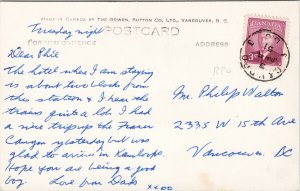 MADE IN CANADA BY THE GOWEN, SUTTON CO. LTD., VANCOUVER, B. C.
POSTCARD
CORRESPONDENCE
ADDRESS
CANADA
Tuesday night
Dear Phil
The hotel where I am staying
is about two blocks from
the station & I hear the
trains quite a lot. I had
a nice trip up the Fraser
Canyon yesterday but was
glad to arrive in Kamloops.
Hope you are being a good
boy. Love from Dad
Mr. Philip Walton
2335 W 15th Ave
Vancouver, BC